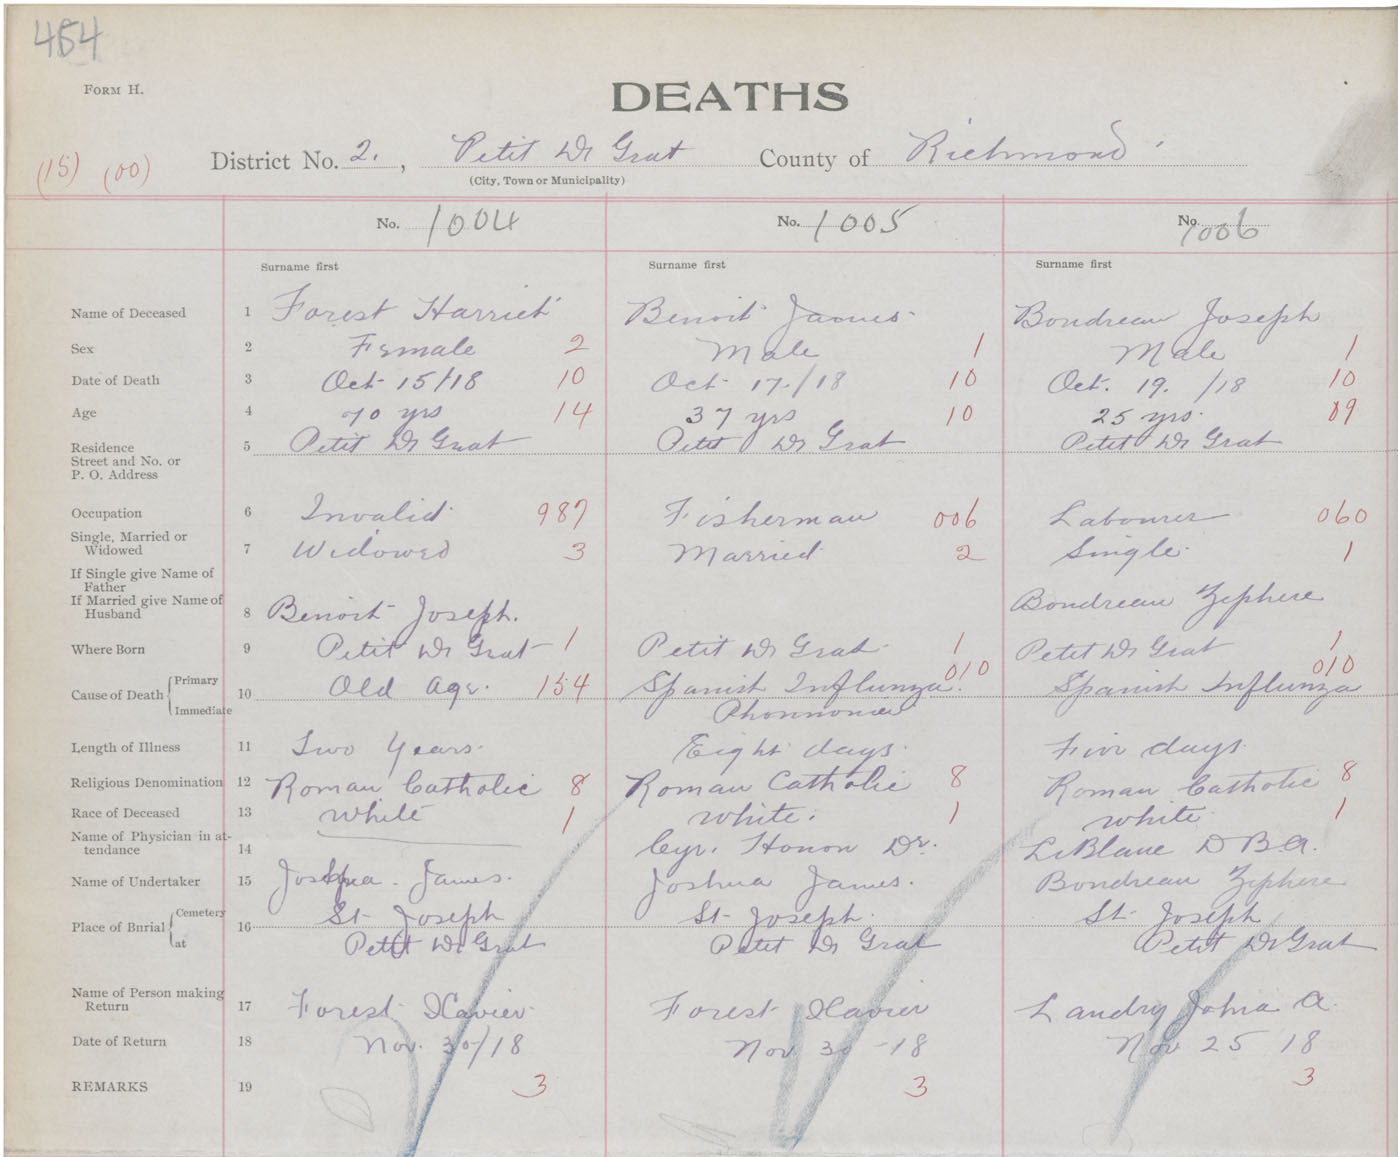 454
FORM H.
DEATHS
(15) (00) District No. 2. , Petit De Grat County of Richmond
(City, Town or Municipality)
No. 1004 No. 1005 No. 1006
Surname first Surname first Surname first
Name of Deceased 1 Forest Harriet Benoit James Boudreau Joseph
Sex 2 Female 2 Male 1 Male 1
Date of Death 3 Oct 15/18 10 Oct 17./18 10 Oct. 19. /18 10
Age 4 70 yrs 14 37 yrs 10 25 yrs. 09
Residence 5 Petit De Grat Petit De Grat Petit De Grat
Street and No. or
P. O. Address
Occupation 6 Invalid 987 Fisherman 006 Labourer 060
Single, Married or
Widowed 7 Widowed 3 Married 2 Single 1
If Single give Name of
Father
If Married give Name of
Husband 8 Benoit Joseph. Boudreau Zephere
Where Born 9 Petit De Grat 1 Petit De Grat 1 Petit De Grat 1
Cause of Death Primary 10 Old Age. 154 Spanish Influnza. 010 Spanish Influnza 010
Immediate Phonnonia
Length of Illness 11 Two Years. Eight days. Five days
Religious Denomination 12 Roman Catholic 8 Roman Catholic 8 Roman Catholic 8
Race of Deceased 13 White 1 White. 1 White 1
Name of Physician in at-
tendance 14 Cyr. Honon Dr. LeBlanc D B A.
Name of Undertaker 15 James. Joshua James. Boudreau Zephere
Place of Burial Cemetery 16 St Joseph St Joseph. St Joseph
at Petit De Grat Petit De Grat Petit De Grat
Name of Person making
Return 17 Forest Xavier Forest Xavier Landry John A.
Date of Return 18 Nov. 30/18 Nov 30 -18 Nov 25 18
REMARKS 19 3 3 3